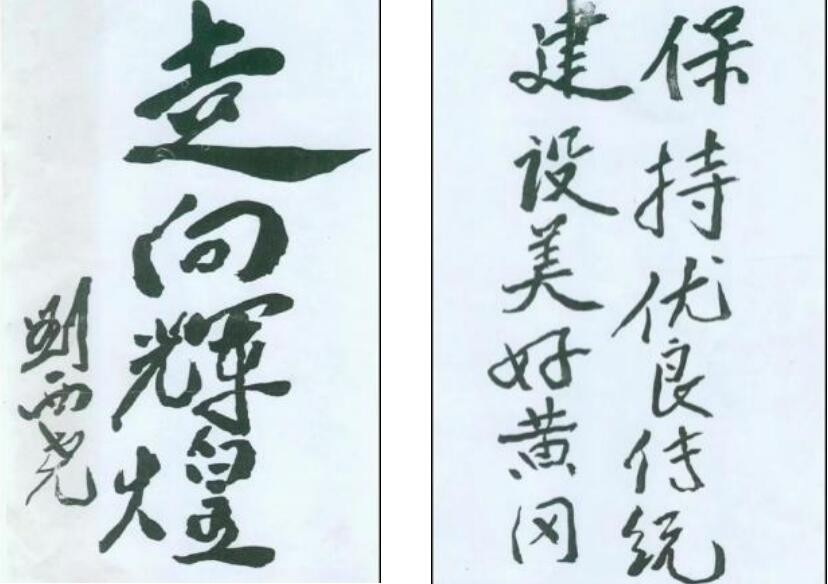 走向輝煌
刘西尧
保持优良传统
建设美好黄冈